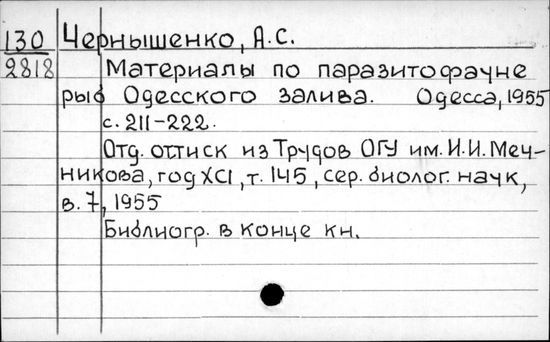 130 Чернышенко, А.С.
2818 Материалы по паразитофауне
рыб Одесского залива. Одесса, 1955
с. 211-222.
Отд. оттиск из Трудов ОГУ им. И.И. Меч-
никова, год XCI, т. 145, сер. биолог. наук,
в. 7, 1955
Библиогр. в конце кн.